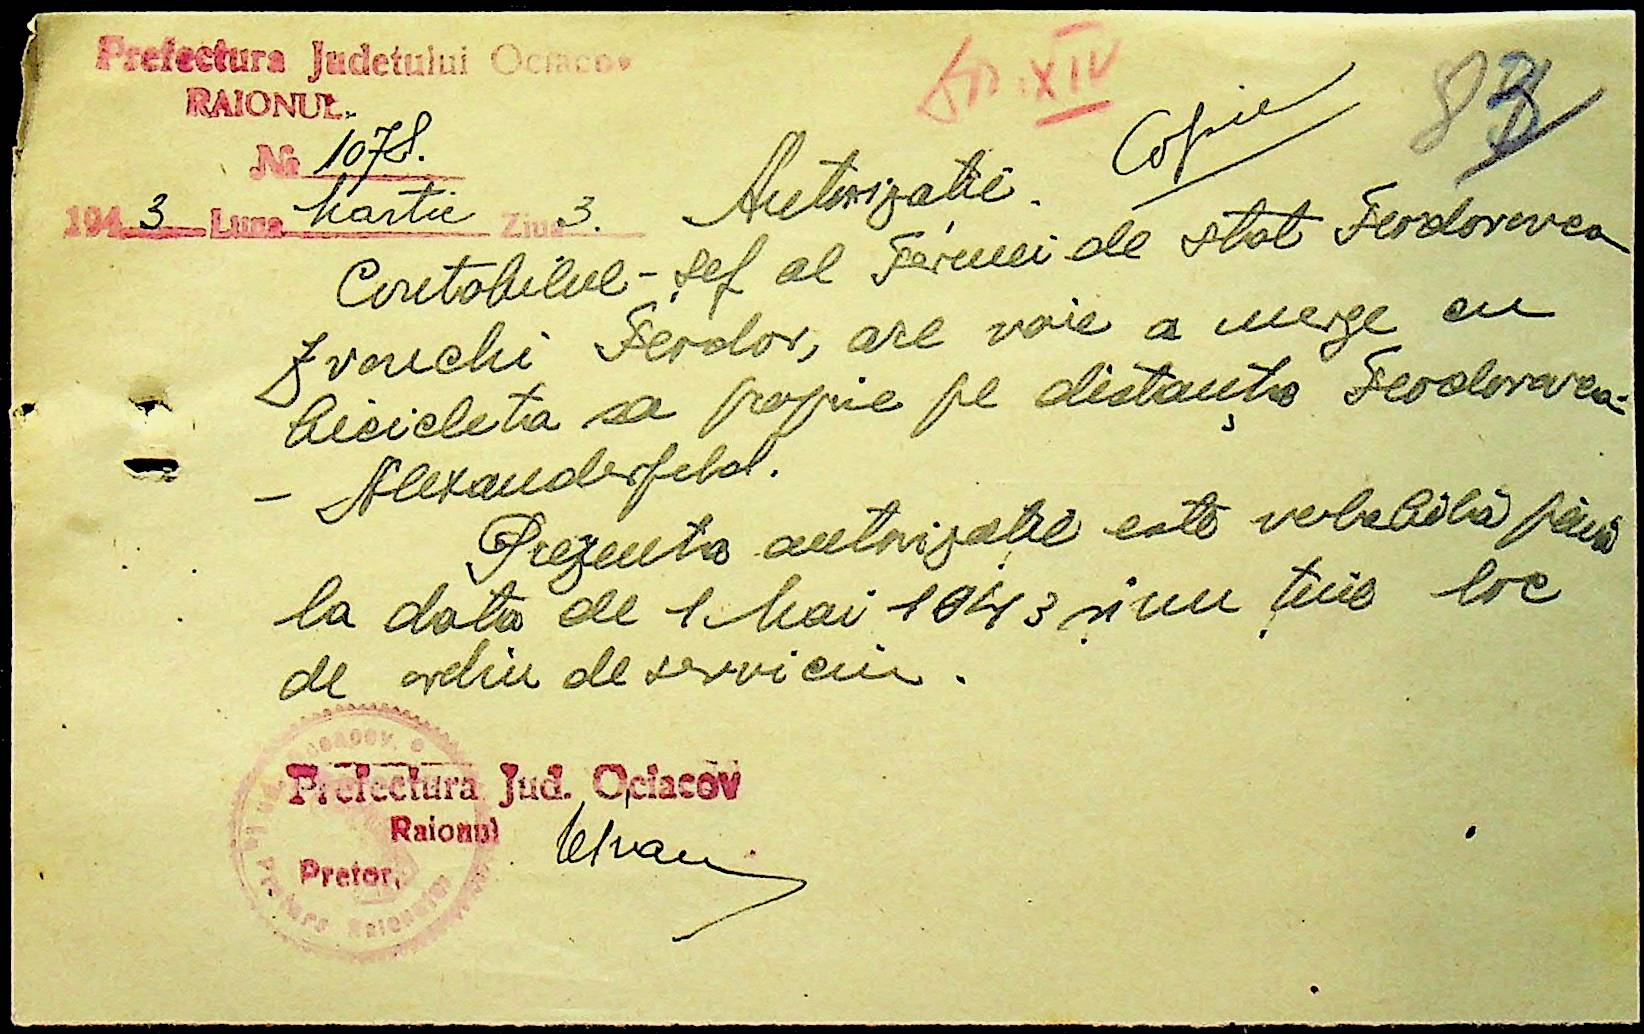 Prefectura Judetului Ociacov
RAIONUL
XIV
Copie
83
№ 1078.
1943 Luna Martie Ziua 3.
Autorizatie.
Contabilul-șef al Fermei de stat Feodorovca
Zvonchi Feodor, are voie a merge cu
bicicleta sa proprie pe distanța Feodorovca-
- Alexanderfeld.
Prezenta autorizație este valabilă până
la data de 1 Mai 1943 și nu ține loc
de ordin de serviciu.
Prefectura Jud. Ociacov
Raionul
Pretor,